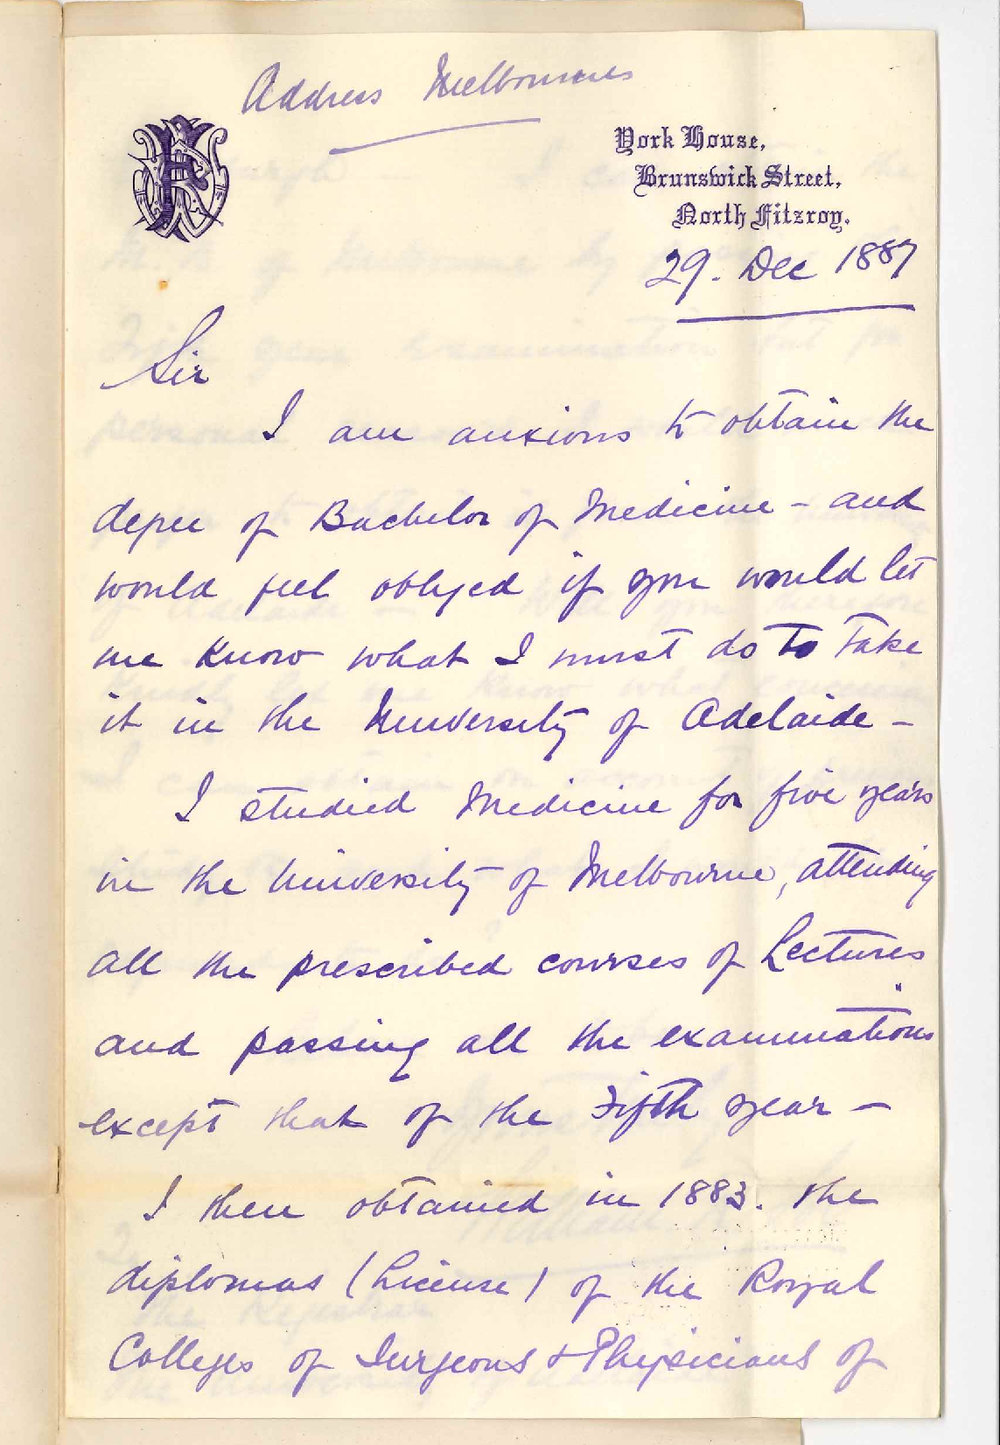 Address Melbourne
York House,
Brunswick Street,
North Fitzroy.
29. Dec 1887
Sir
I am anxious to obtain the
degree of Bachelor of Medicine - and
would feel obliged if you would let
me know what I must do to take
it in the University of Adelaide -
I studied Medicine for five years
in the University of Melbourne, attending
all the prescribed courses of Lectures
and passing all the examinations
except that of the Fifth year -
I then obtained in 1883. the
diplomas (License) of the Royal
Colleges of Surgeons & Physicians of